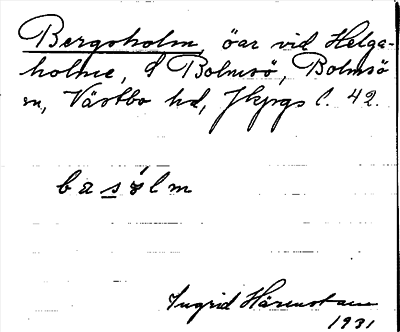 Bergsholm, öar vid Helga-
holme, S Bolmsö, Bolmsö
sn, Västbo hd, Jkpgs l. 42.
basɷlm
Ingrid Härenstam
1931